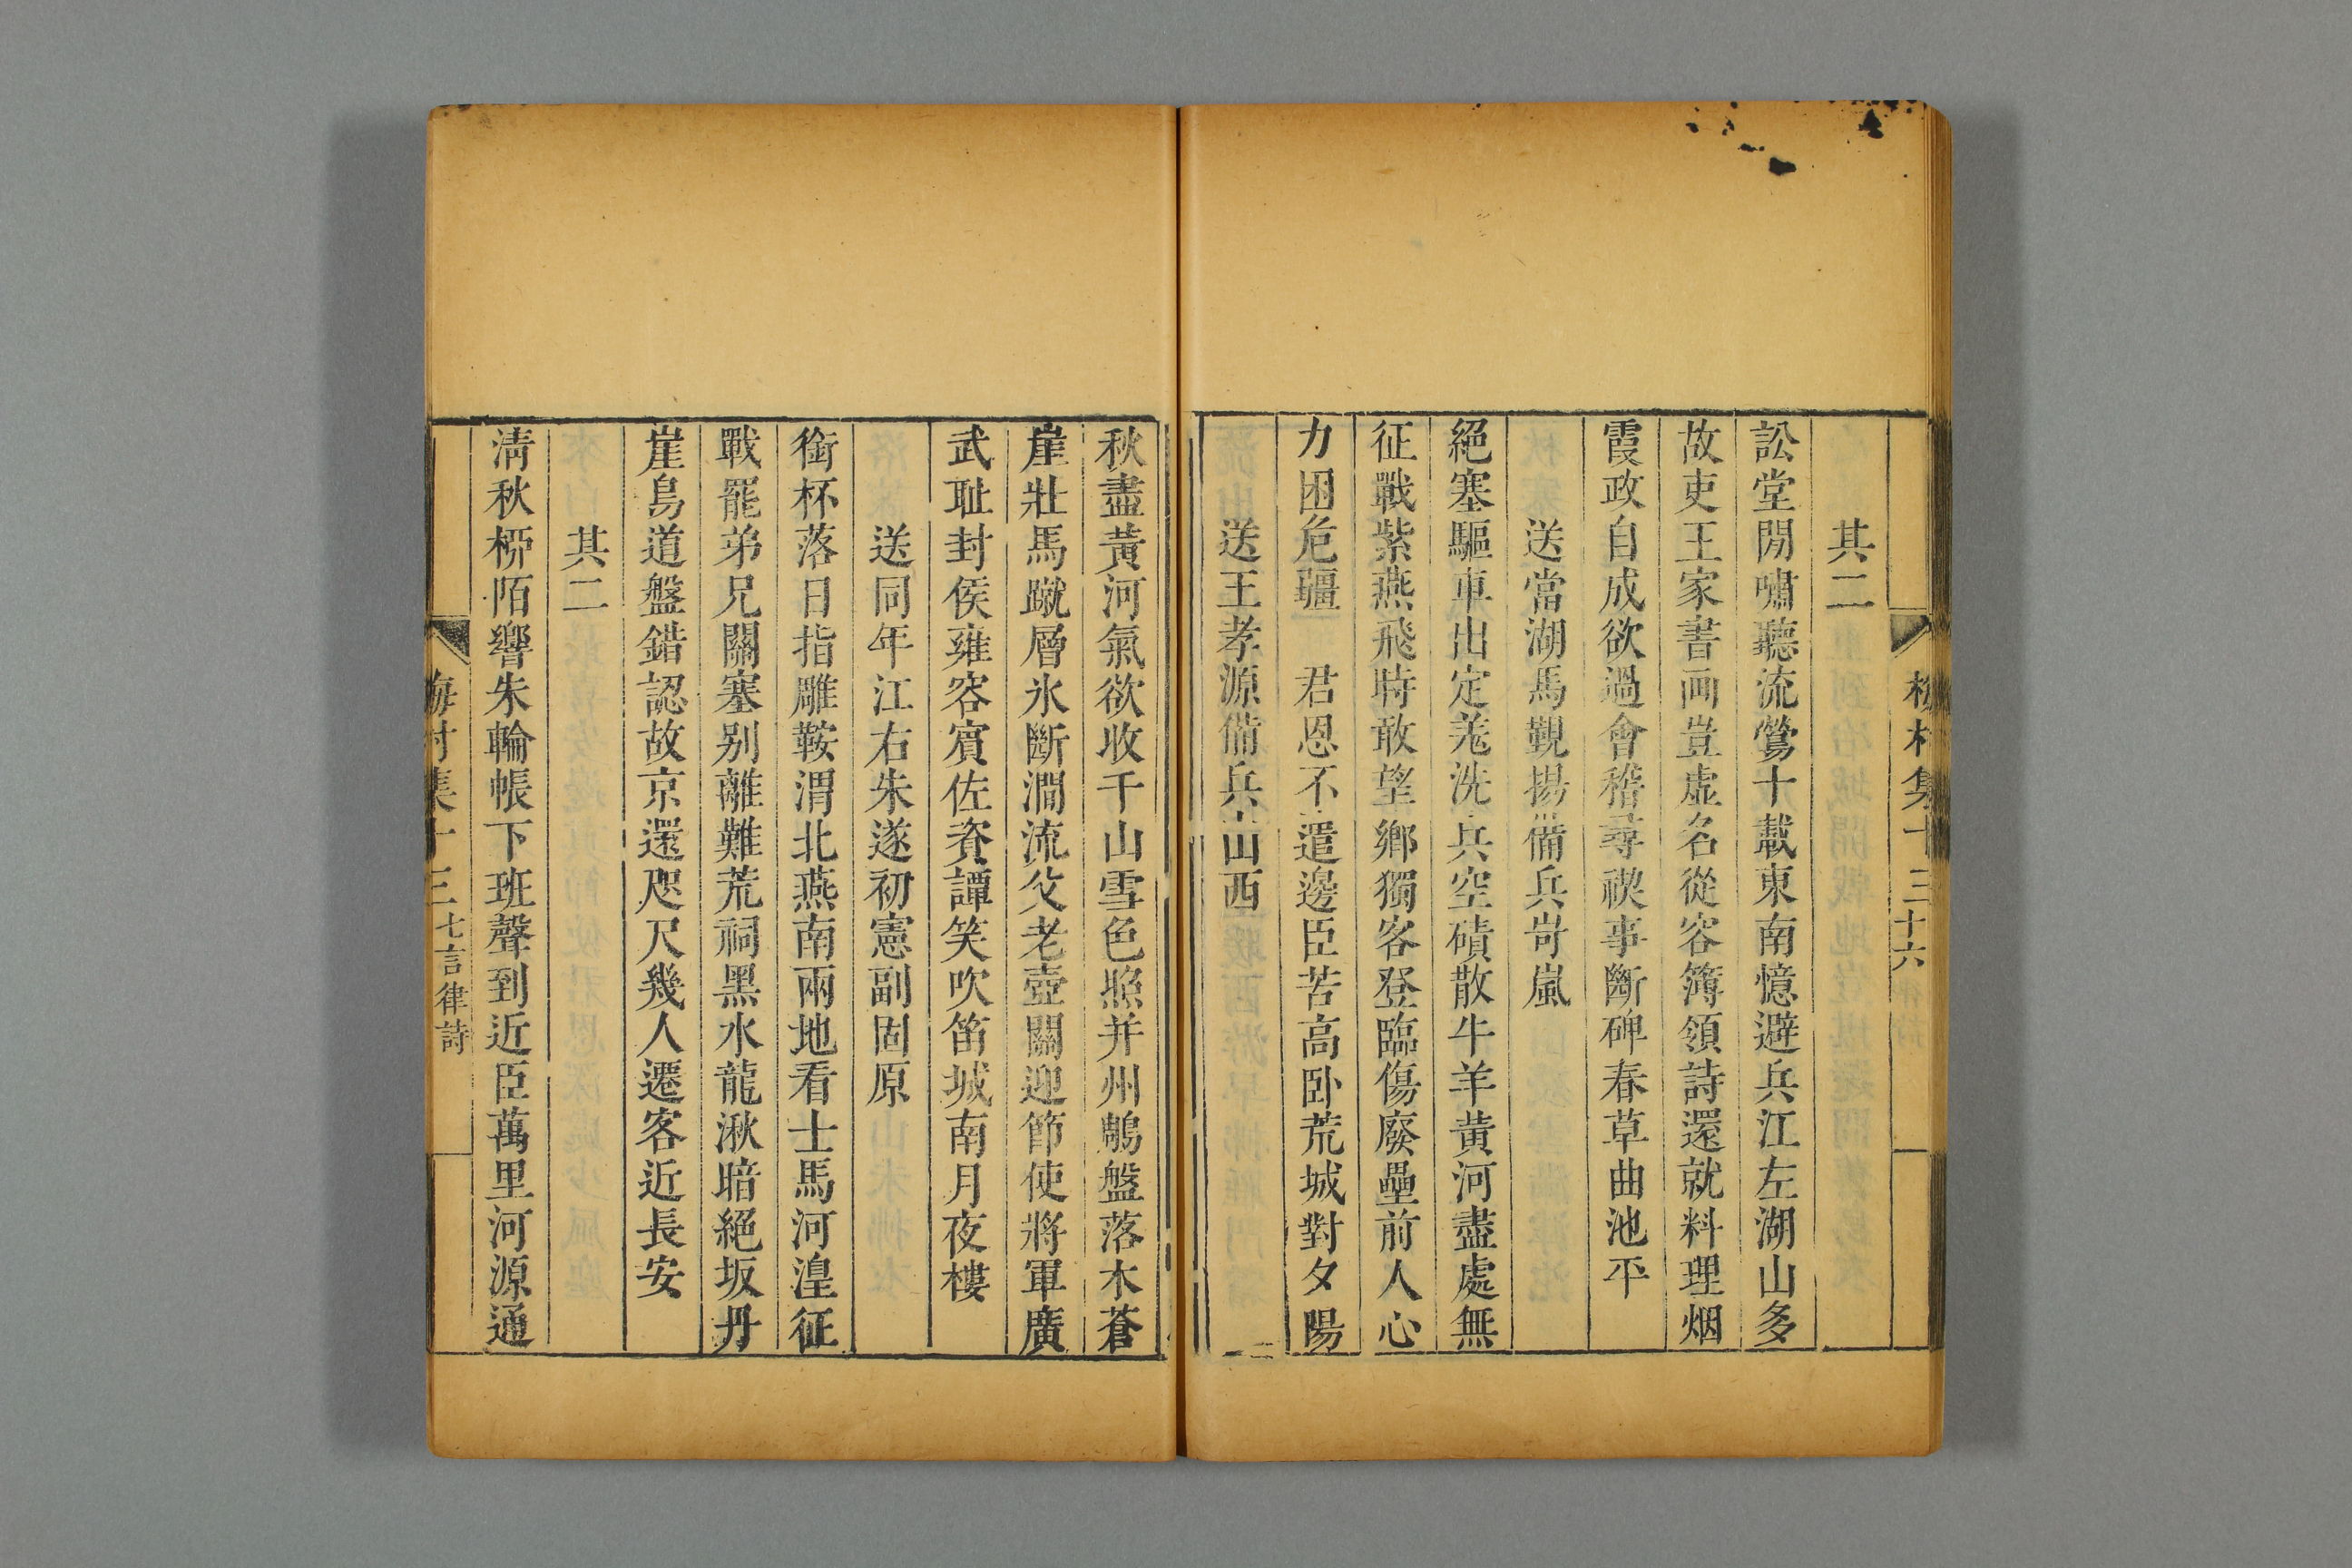 梅村集十三 十六
其二
訟堂閒嘯聽流鶯十載東南憶避兵江左湖山多
故吏王家書画豈虛名從容簿領詩還就料理烟
霞政自成欲過會稽尋禊事斷碑春草曲池平
送當湖馬觀揚備兵岢嵐
絕塞驅車出定羌洗兵空磧散牛羊黃河盡處無
征戰紫燕飛時敢望鄉獨客登臨傷廢壘前人心
力困危疆 君恩不遣邊臣苦高卧荒城對夕陽
送王孝源備兵山西
秋盡黃河氣欲收千山雪色照并州鵰盤落木蒼
崖壯馬蹴層氷斷澗流父老壺關迎節使將軍廣
武耻封侯雍容賓佐資譚笑吹笛城南月夜樓
送同年江右朱遂初憲副固原
銜杯落日指雕鞍渭北燕南兩地看士馬河湟征
戰罷弟兄關塞别離難荒祠黑水龍湫暗絕坂丹
崖鳥道盤錯認故京還咫尺幾人遷客近長安
其二
清秋柳陌響朱輪帳下班聲到近臣萬里河源通
梅村集十三 七言律詩